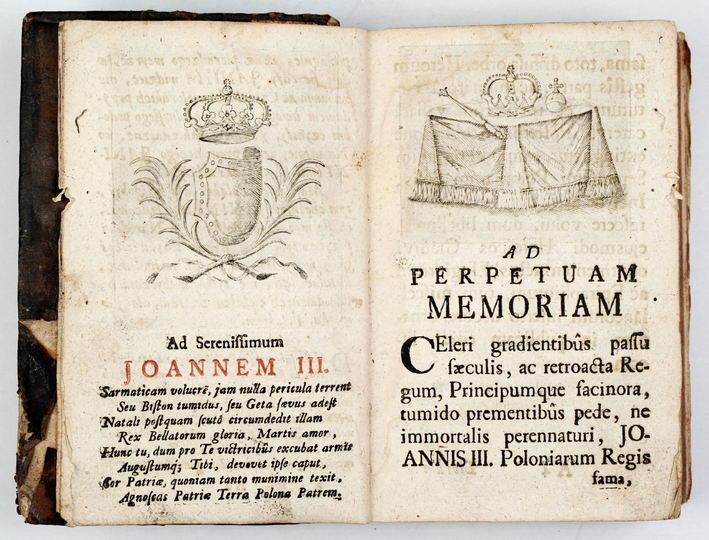 Ad Sereniſſimum
JOANNEM III.
Sarmaticam volucrē, jam nulla pericula terrent
Seu Biſton tumidus, ſeu Geta ſævus adeſt
Natali poſtquam ſcutô circumdedit illam
Rex Bellatorum gloria, Martis amor,
Hunc tu, dum pro Te victricibûs excubat armis
Auguſtumq; Tibi, devovet ipſe caput,
Cor Patriæ, quoniam tanto munimine texit,
Agnoſcas Patriæ Terra Polona Patrem.
AD
PERPETUAM
MEMORIAM
CEleri gradientibûs paſſu
ſæculis, ac retroacta Re-
gum, Principumque facinora,
tumido prementibûs pede, ne
immortalis perennaturi, JO-
ANNIS III. Poloniarum Regis
fama,